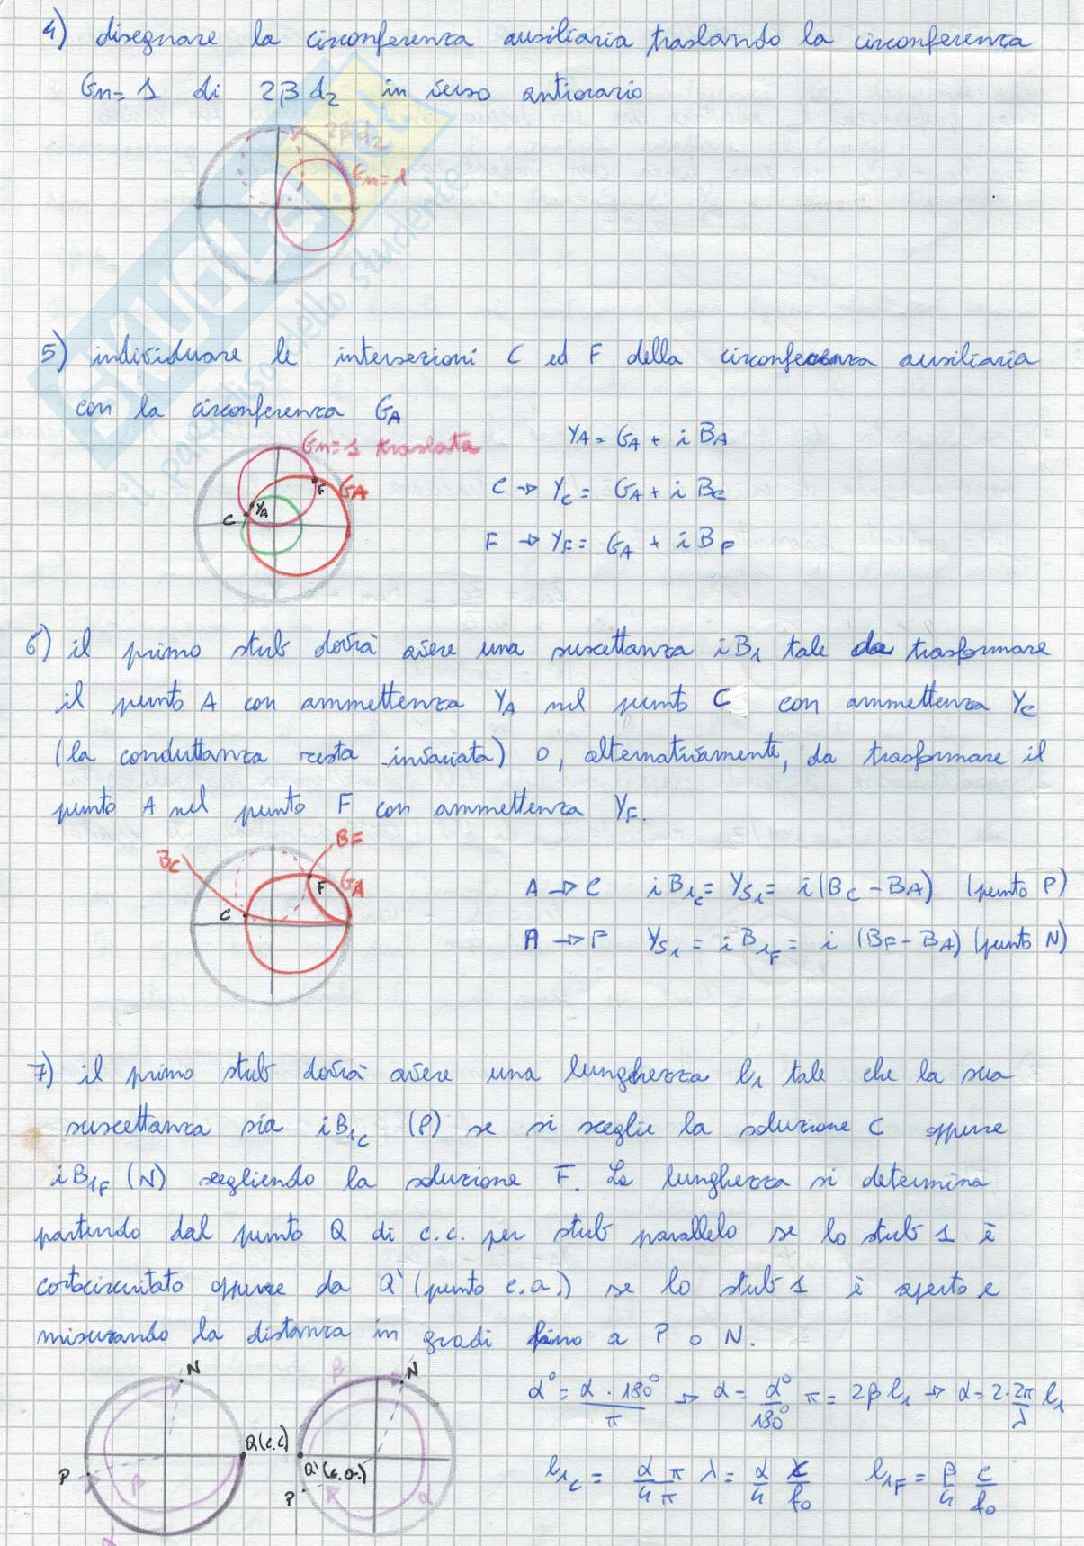 4) disegnare la circonferenza ausiliaria traslando la circonferenza
Gn=1 di 2βd₂ in senso antiorario
2βd₂
Gn=1
5) individuare le intersezioni C ed F della circonferenza ausiliaria
con la circonferenza GA
Gn=1 traslata
GA
F
YA
C
YA = GA + iBA
C → YC = GA + iBC
F → YF = GA + iBF
6) il primo stub dovrà avere una suscettanza iB1 tale da trasformare
il punto A con ammettenza YA nel punto C con ammettenza YC
(la conduttanza resta invariata) o, alternativamente, da trasformare il
punto A nel punto F con ammettenza YF.
BC
BF
F
GA
C
A → C iB1C = YS1 = i(BC - BA) (punto P)
A → F YS1 = iB1F = i (BF - BA) (punto N)
7) il primo stub dovrà avere una lunghezza l1 tale che la sua
suscettanza sia iB1C (P) se si sceglie la soluzione C oppure
iB1F (N) scegliendo la soluzione F. La lunghezza si determina
partendo dal punto Q di c.c. per stub parallelo se lo stub 1 è
cortocircuitato oppure da Q' (punto c.a.) se lo stub 1 è aperto e
misurando la distanza in gradi fino a P o N.
N
Q(c.c)
P
β
α
β
N
Q'(c.a.)
P
α
α° = α · 180° / π → α = α° / 180° π = 2βl1 → α = 2 · 2π/λ l1
l1C = α π / 4 π λ = α/4 c/f0 l1F = β/4 c/f0
SKUOLA.net
il paradiso dello studente